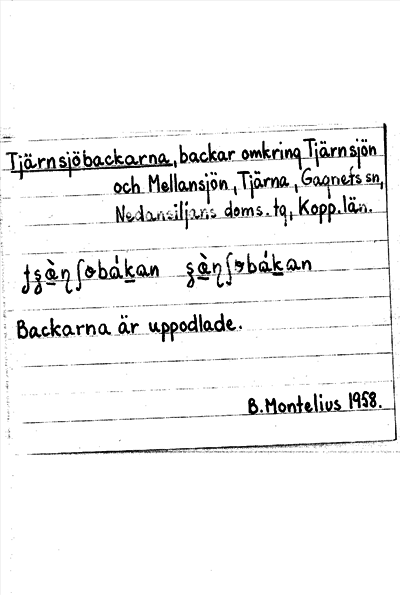 Tjärnsjöbackarna, backar omkring Tjärnsjön
och Mellansjön, Tjärna, Gagnefs sn,
Nedansiljans doms. tg, Kopp. län.
Backarna är uppodlade.
B. Montelius 1958.